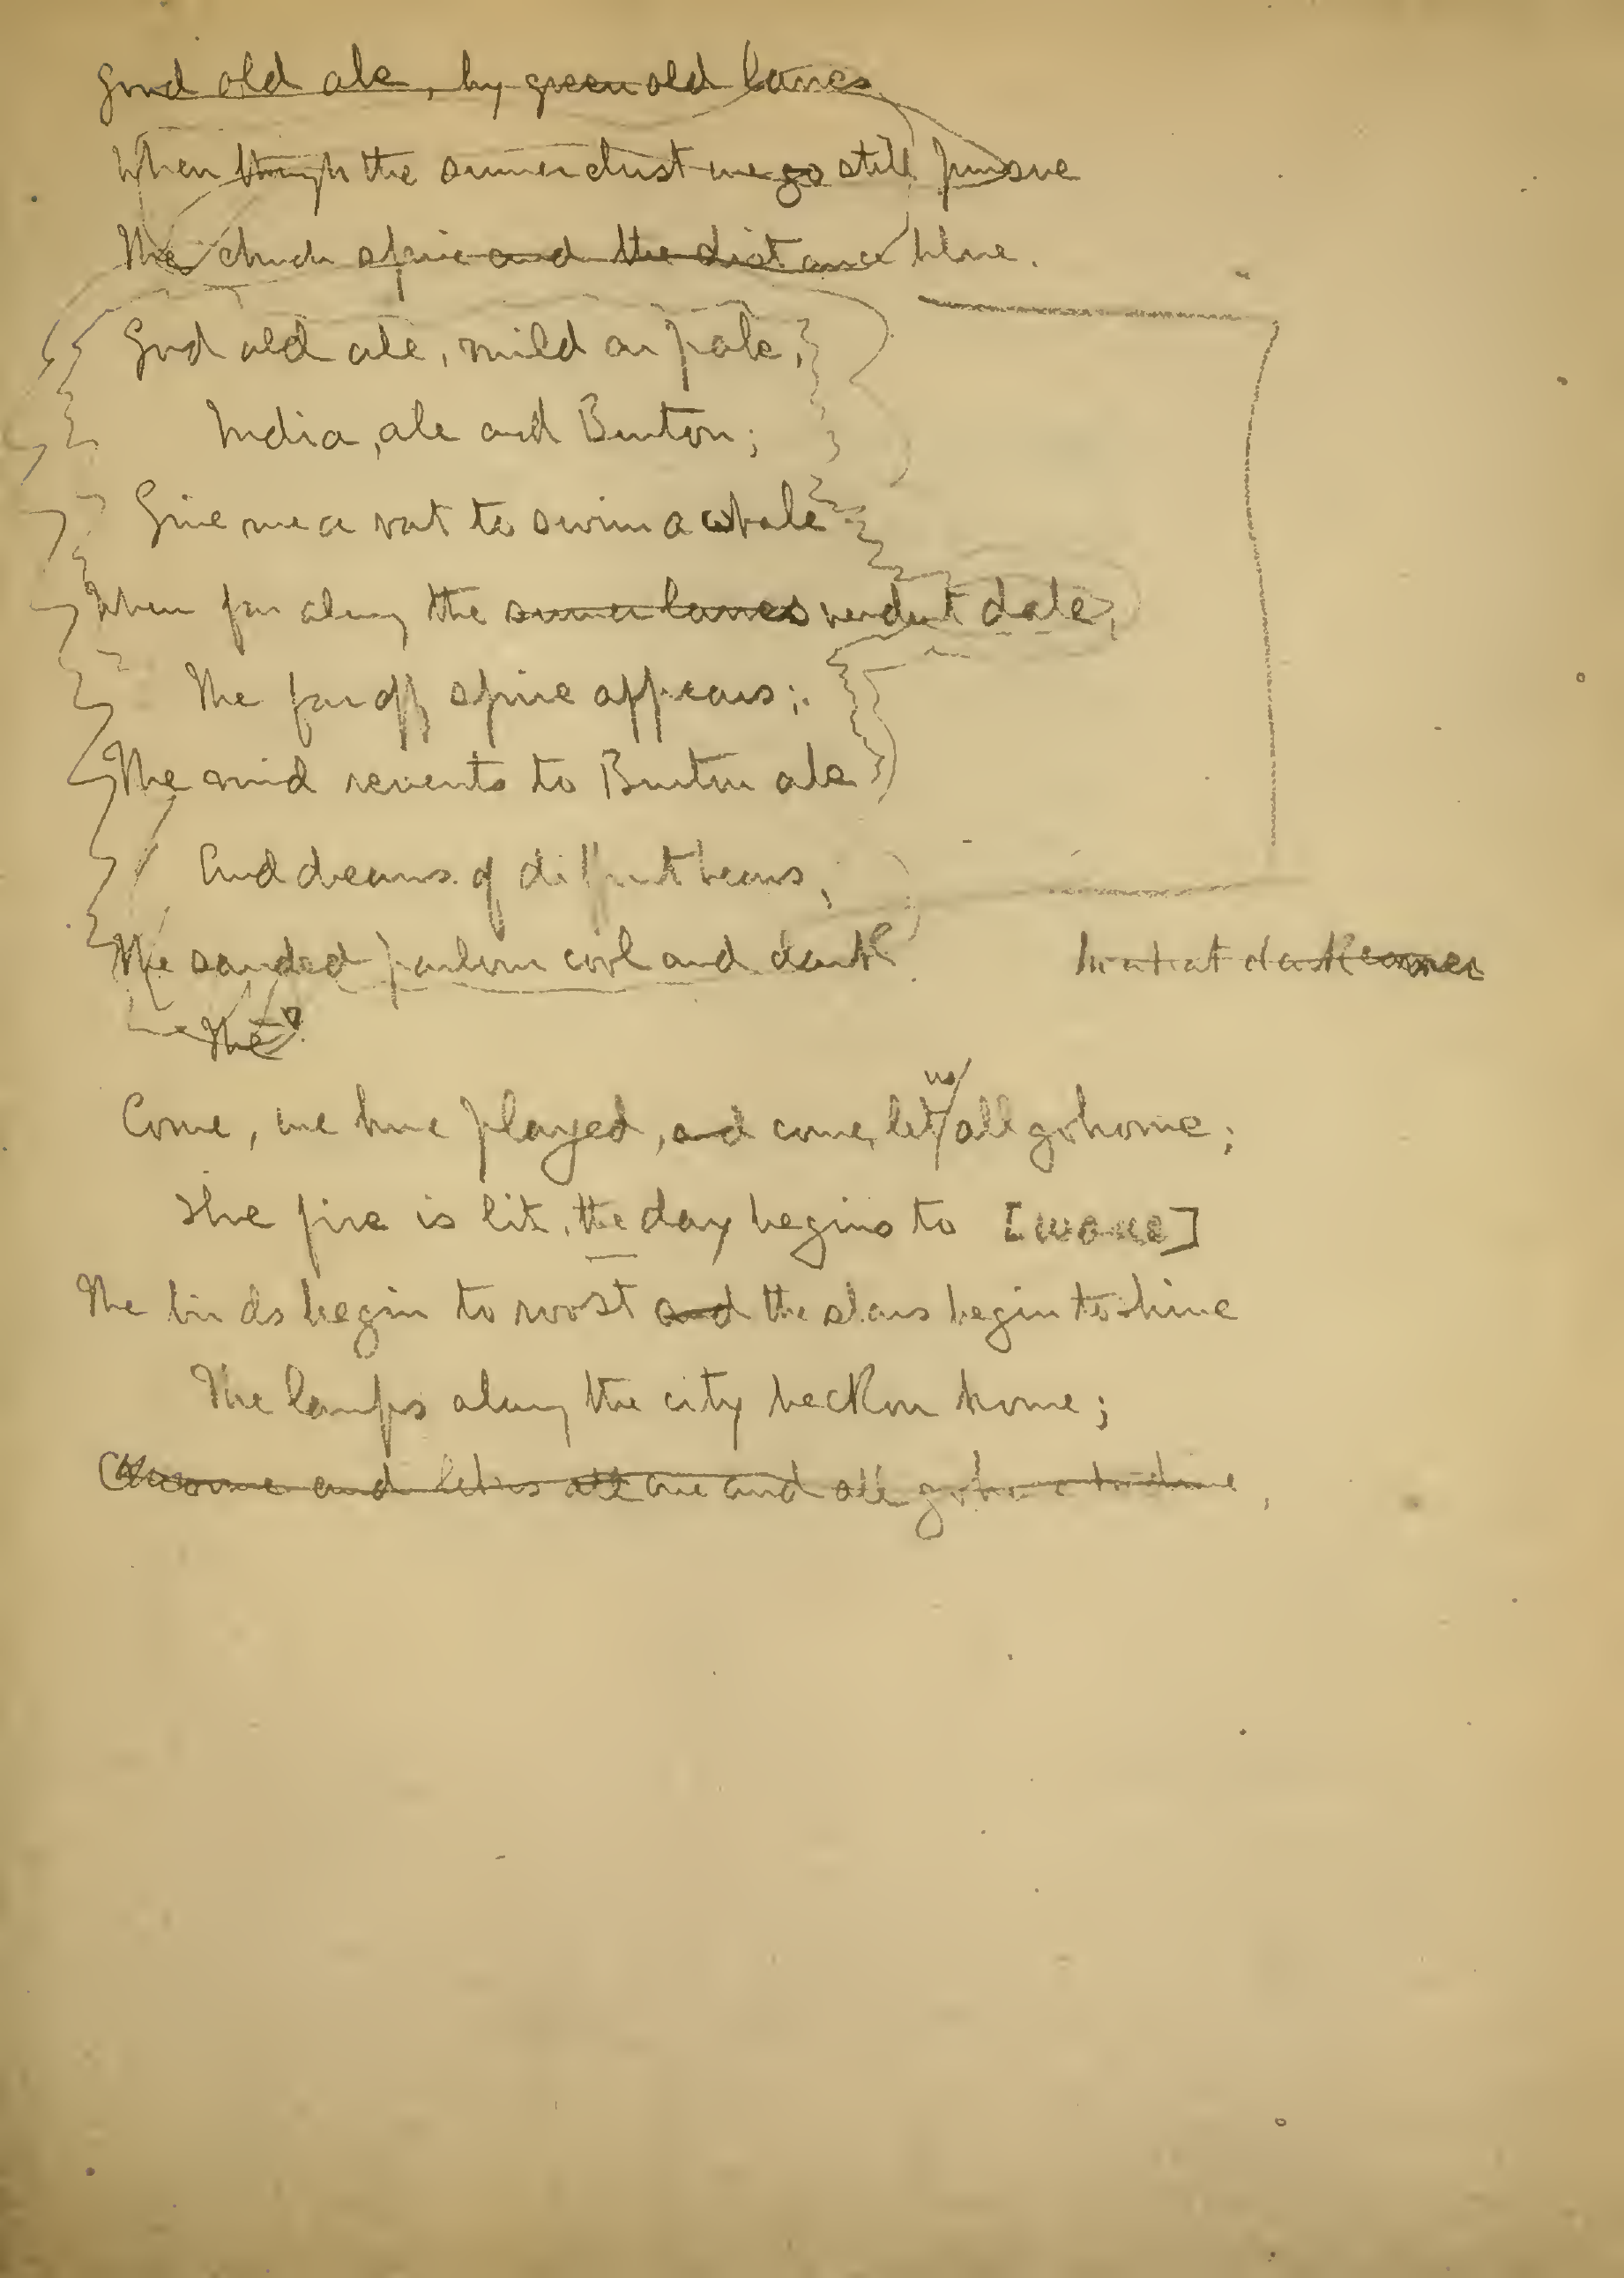 Good old ale, by green old lanes
When though the summer dust we go still pursue
The church spire and the distance blue.
Good old ale, mild or pale,
India, ale and Burton;
Give me a vat to swim a whale
When far along the summer lanes verdent dale,
The far off spire appears;
The mind reverts to Burton ale
And dreams of diffrent beers,
The sanded parlour cool and dark
In that dark corner
The
Come, we have played, and come, let us all go home;
The fire is lit, the day begins to
The birds begin to roost and the stars begin to shine
The lamps along the city beckon home;
Come and let us all one and all go home to dine,